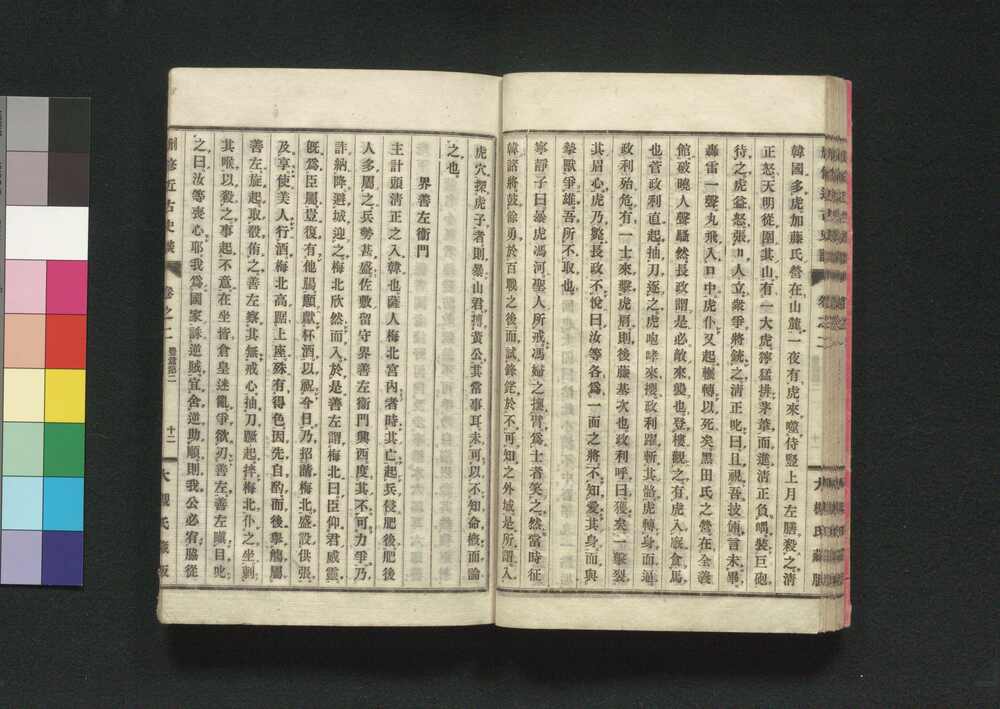 韓國多虎加藤氏營在山麓一夜有虎來噬侍豎上月左膳殺之淸
正怒天明從圍其山有一大虎獰猛排茅葦而進淸正負嵎裝巨砲
待之虎益怒張口人立衆爭將銃之淸正叱曰且視吾技倆言未畢
轟雷一聲丸飛入口中虎仆又起輾轉以死矣黑田氏之營在全義
館破曉人聲騷然長政謂是必敵來襲也登樓觀之有虎入廐食馬
也菅政利直起抽刀逐之虎咆哮來攫政利躍斬其骼虎轉身而逼
政利殆危有一士來擊虎肩則後藤基次也政利呼曰獲矣一擊裂
其眉心虎乃斃長政不悅曰汝等各爲一面之將不知愛其身而與
摯獸爭雄吾所不取也
寧靜子曰暴虎馮河聖人所戒馮婦之攘臂爲士者笑之然當時征
韓諸將鼓餘勇於百戰之後而試鋒鋩於不可知之外域是所謂入
虎穴探虎子者則暴山君搏黃公其當事耳未可以不知命概而論
之也
界善左衞門
主計頭淸正之入韓也薩人梅北宮內者時其亡起兵侵肥後肥後
人多屬之兵勢甚盛佐敷留守界善左衞門興西度其不可力爭乃
詐納降避城迎之梅北欣然而入於是善左謂梅北曰臣仰君威靈
旣爲臣屬豈復有他腸願獻杯酒以祝今日乃招請梅北盛設供張
及享使美人行酒梅北高踞上座殊有得色因先自酌而後擧觴屬
善左旋起取殽侑之善左察其無戒心抽刀驟起捽梅北仆之坐剚
其喉以殺之事起不意在坐皆倉皇迷亂爭欲刃善左善左瞋目叱
之曰汝等喪心耶我爲國家誅逆賊宜舍逆助順則我公必宥脇從
刪修近古史談
卷之二
豐篇第二
十二
大槻氏藏版